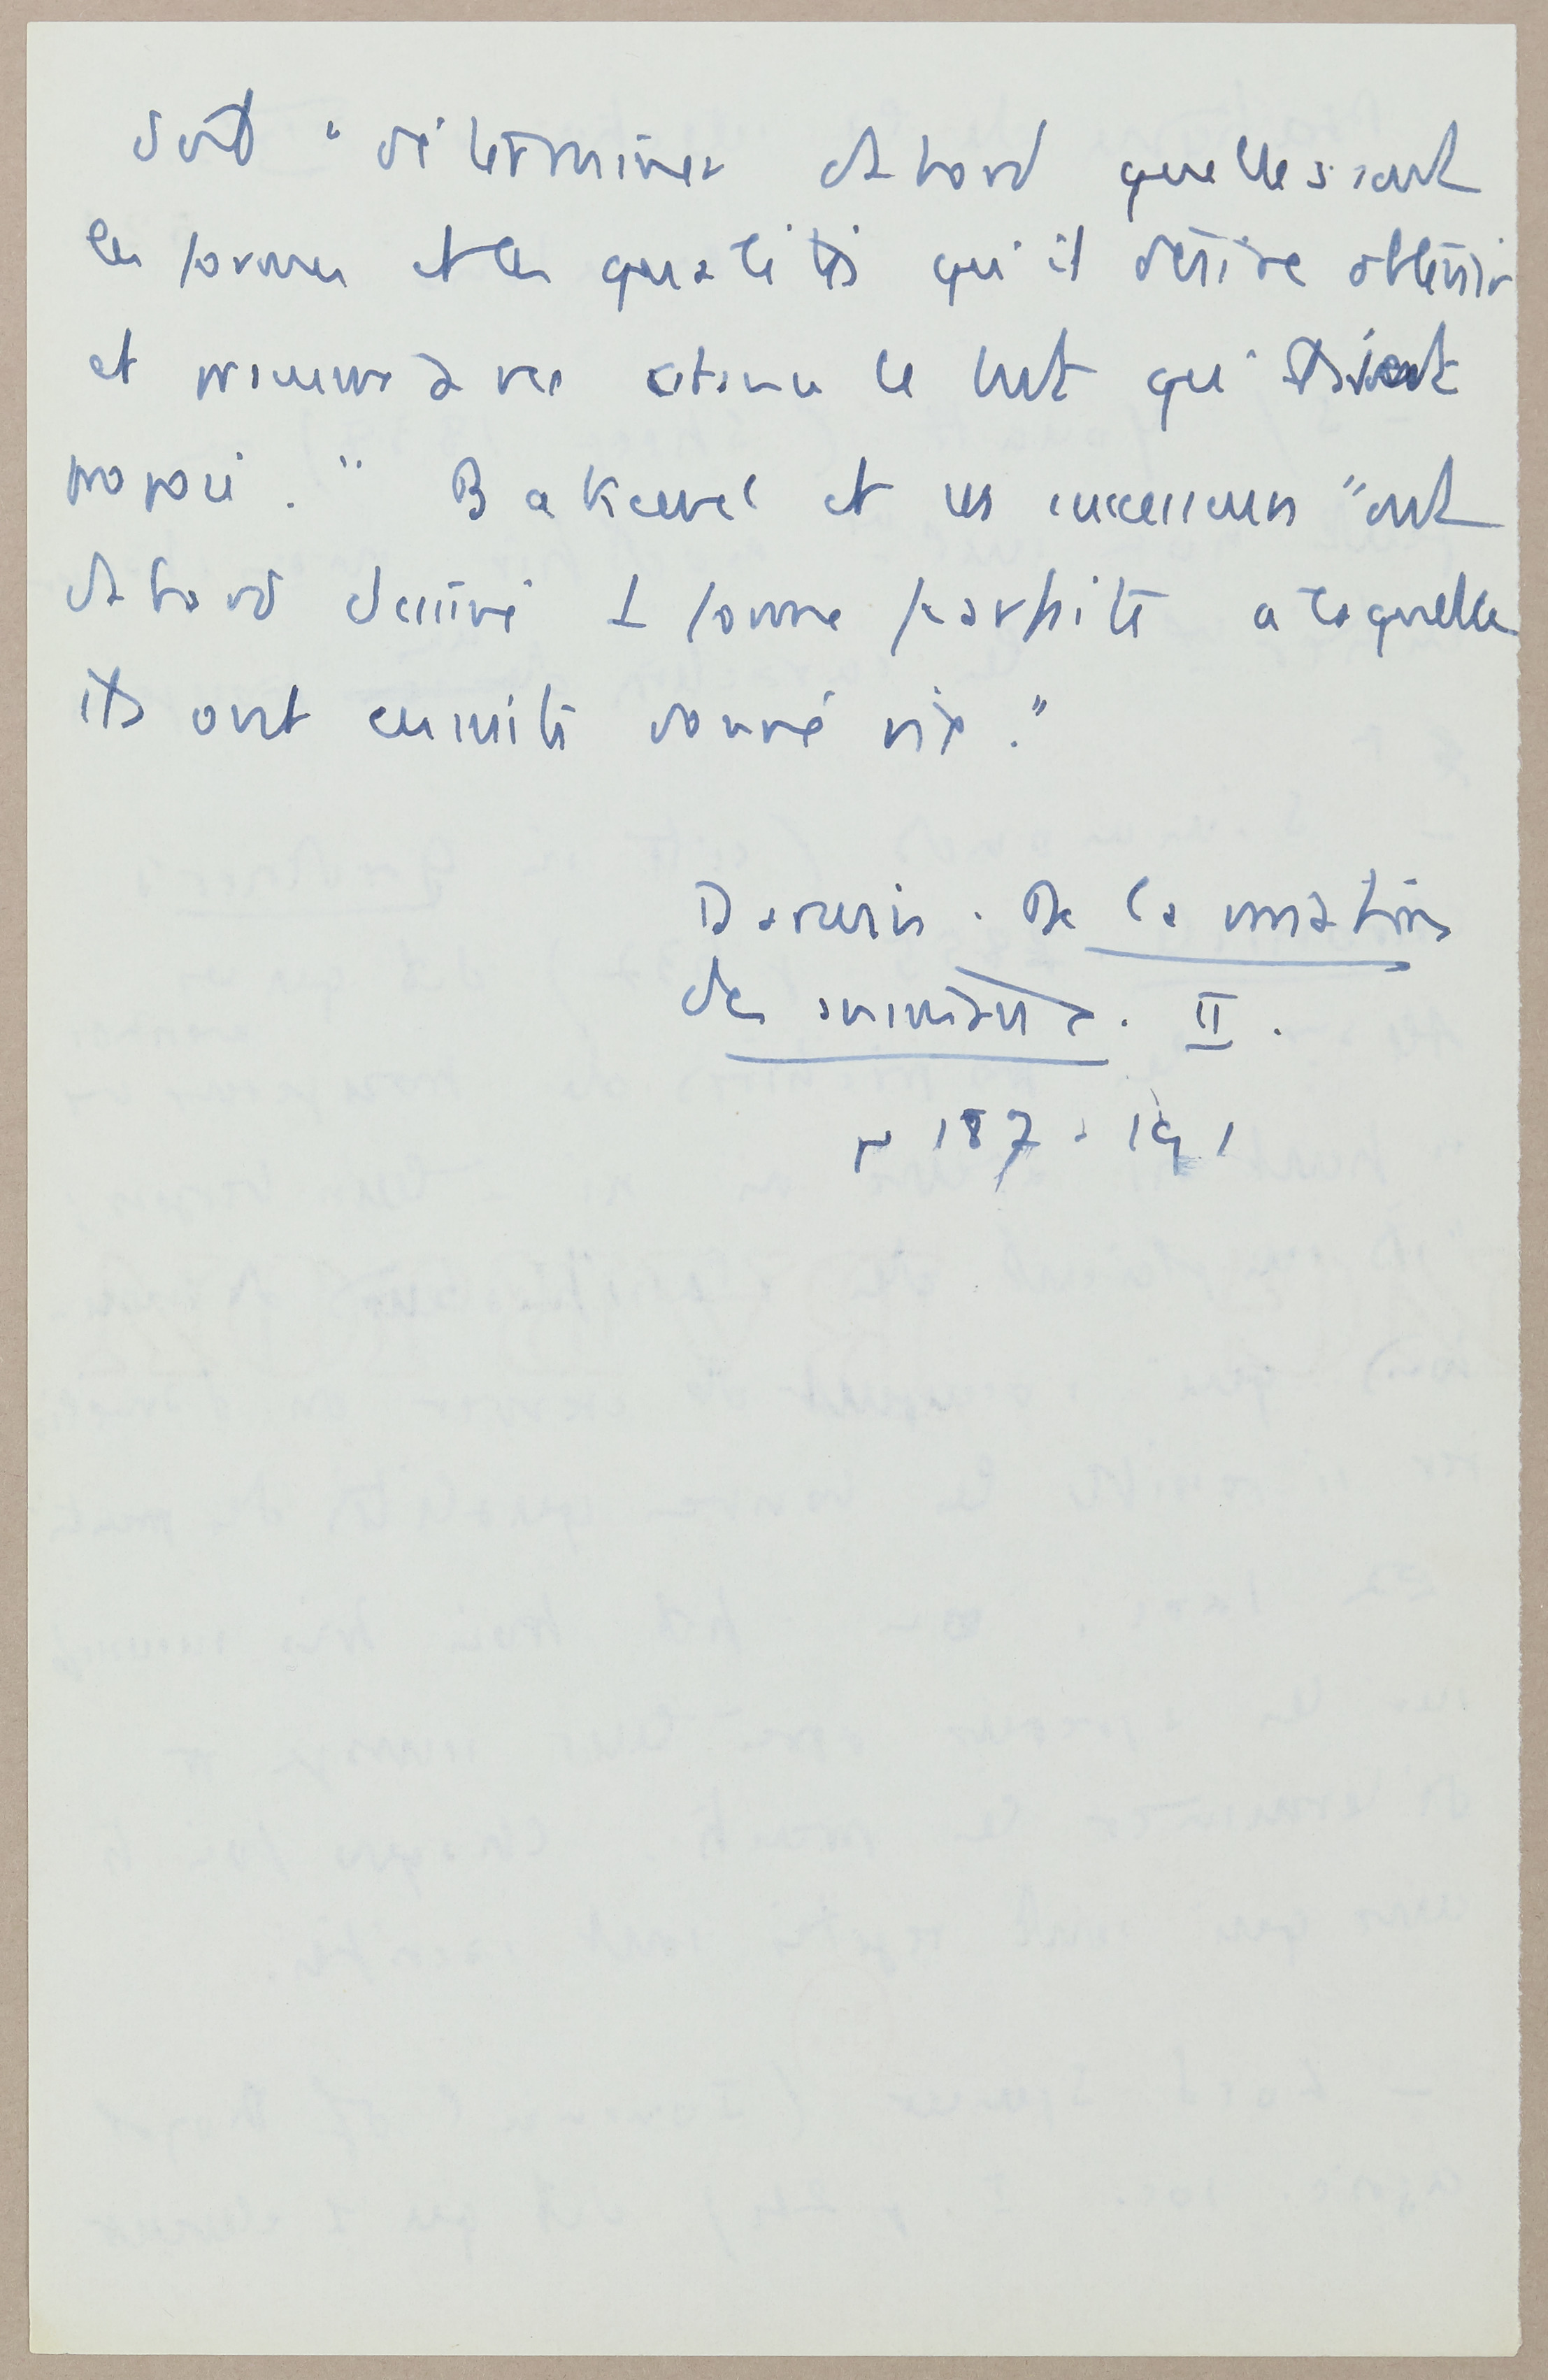 doit "déterminer d'abord quelles sont
les formes et les qualités qu'il désire obtenir
et poursuivre le but qu'il s'est
proposé." Bakewel et ses successeurs "ont
d'abord dessiné 1 forme parfaite a laquelle
ils ont ensuite donné vie."
Darwin. De la variation
des animaux. II.
p 187-191